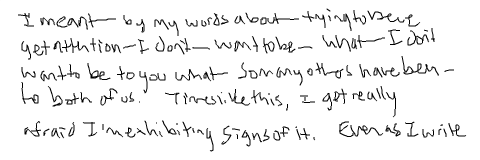 I meant by my words about trying to serve
get attention – I don't want to be what I don't
want to be to you what so many others have been
to both of us. Times like this, I get really
afraid I'm exhibiting signs of it. Even as I write